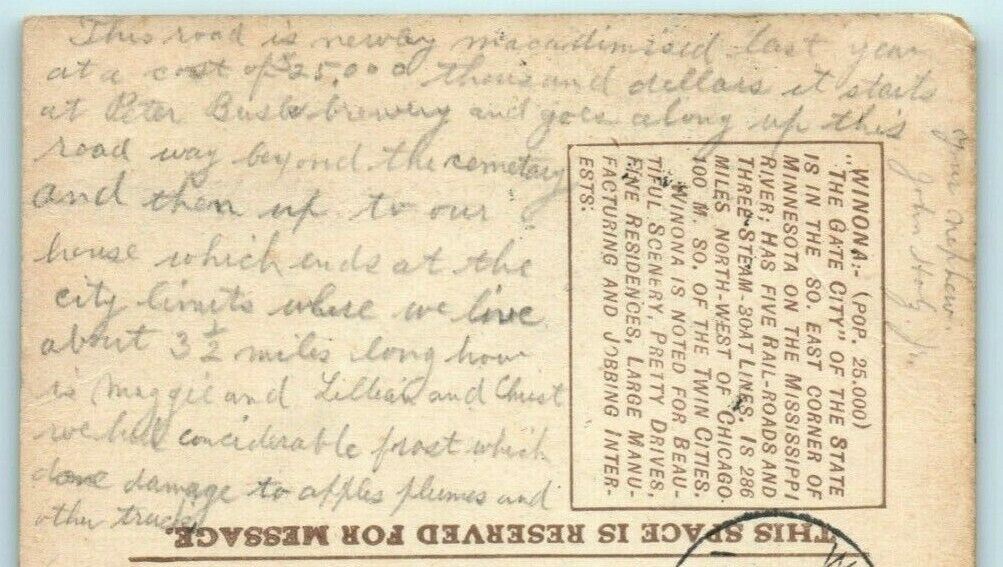 This road is newly macadimised last year
at a cost of $25.000 thousand dollars it starts
at Peter Busb brewery and goes along up this
road way beyond the cemetary
and then up to our
house which ends at the
city limits where we live
about 3 1/2 miles long how
is Maggie and Lillian and Christ
we had conciderable frost which
done damage to apples plumes and
other truck
your Nephew.
John Jr.
"WINONA:- (POP. 25.000)
"THE GATE CITY" OF THE STATE
IS IN THE SO. EAST CORNER OF
MINNESOTA ON THE MISSISSIPPI
RIVER; HAS FIVE RAIL-ROADS AND
THREE STEAM-BOAT LINES, IS 286
MILES NORTH-WEST OF CHICAGO-
100 M. SO. OF THE TWIN CITIES.
WINONA IS NOTED FOR BEAU-
TIFUL SCENERY, PRETTY DRIVES,
FINE RESIDENCES, LARGE MANU-
FACTURING AND JOBBING INTER-
ESTS:
THIS SPACE IS RESERVED FOR MESSAGE.